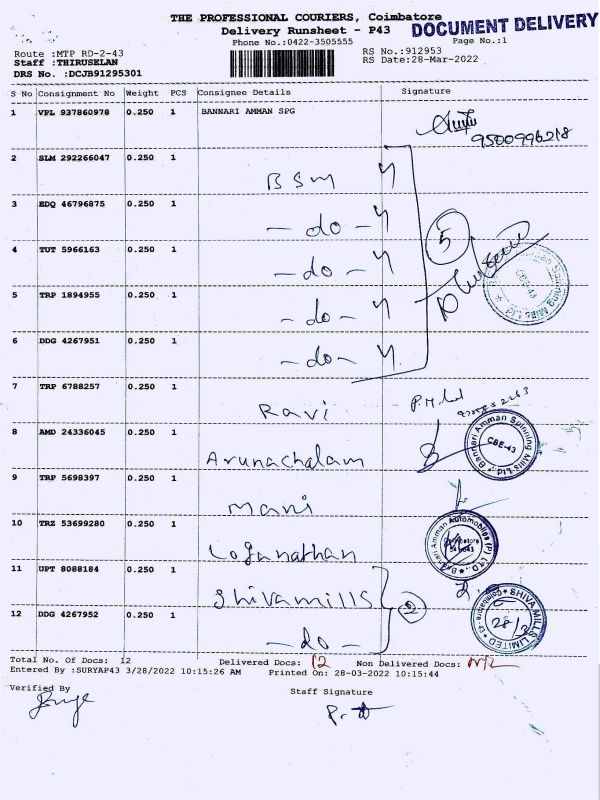 THE PROFESSIONAL COURIERS, Coimbatore
DOCUMENT DELIVERY
Delivery Runsheet - P43
Phone No.:0422-3505555
Page No.:1
Route :MTP RD-2-43
RS No.:912953
Staff :THIRUSELAN
RS Date:28-Mar-2022
DRS No. :DCJB91295301
S No Consignment No Weight PCS Consignee Details Signature
1 VPL 937860978 0.250 1 BANNARI AMMAN SPG
9500996218
2 SLM 292266047 0.250 1
BSM
3 EDQ 46796875 0.250 1
- do -
4 TUT 5966163 0.250 1
- do -
5
5 TRP 1894955 0.250 1
- do -
6 DDG 4267951 0.250 1
- do -
7 TRP 6788257 0.250 1
Ravi
8 AMD 24336045 0.250 1
Arunachalam
Bannari Amman Spinning Mills Ltd.
CBE-43
9 TRP 5698397 0.250 1
Mani
10 TRZ 53699280 0.250 1
Loganathan
Bannari Amman Automobiles (P) LTD.
11 UPT 8088184 0.250 1
Shivamills
2
SHIVA MILLS LIMITED
28/3
12 DDG 4267952 0.250 1
- do -
Total No. Of Docs: 12 Delivered Docs: 12 Non Delivered Docs: NIL
Entered By :SURYAP43 3/28/2022 10:15:26 AM Printed On: 28-03-2022 10:15:44
Verified By Staff Signature